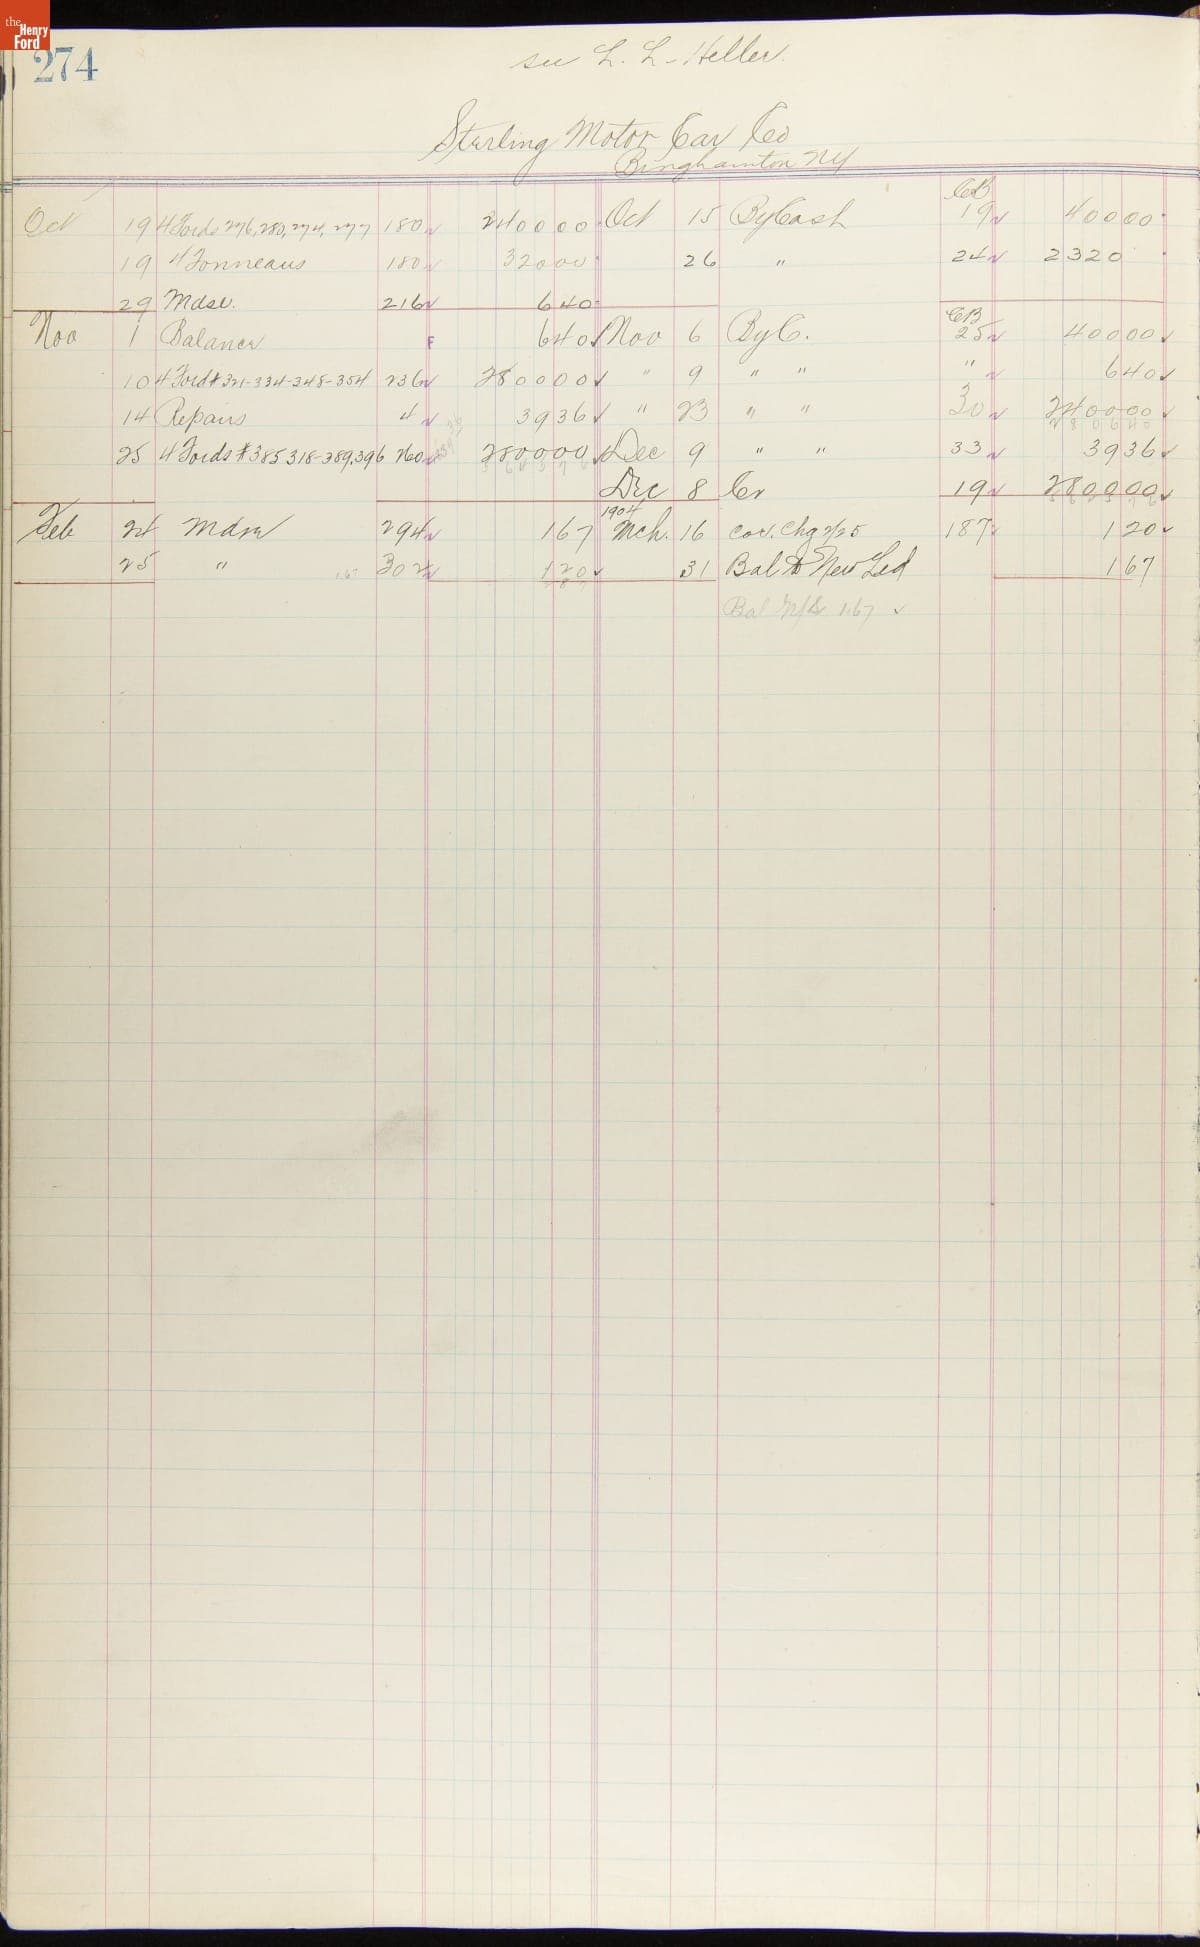 the Henry Ford
274
see L. L. Heller.
Sterling Motor Car Co
Binghamton NY
CB
Oct 19 4 Fords 276, 280, 274, 277 180 240000 Oct 15 By Cash 19 40000
19 4 Tonneaus 180 32000 26 " 24 2320
29 Mdse. 216 640
CB
Nov 1 Balance F 640 Nov 6 By C. 25 40000
10 4 Ford # 321-334-348-354 236 280000 " 9 " " " 640
14 Repairs 4 3936 " 23 " " 30 240000
280640
25 4 Fords # 385 318-389.396 260 280000 Dec 9 " " 33 3936
Dec 8 Cr 19 280000
1904
Feb 24 Mdse 294 167 Mch. 16 Cor. Chg 2/25 187 120
25 " 302 120 31 Bal to New Led 167
287
Bal 1.67